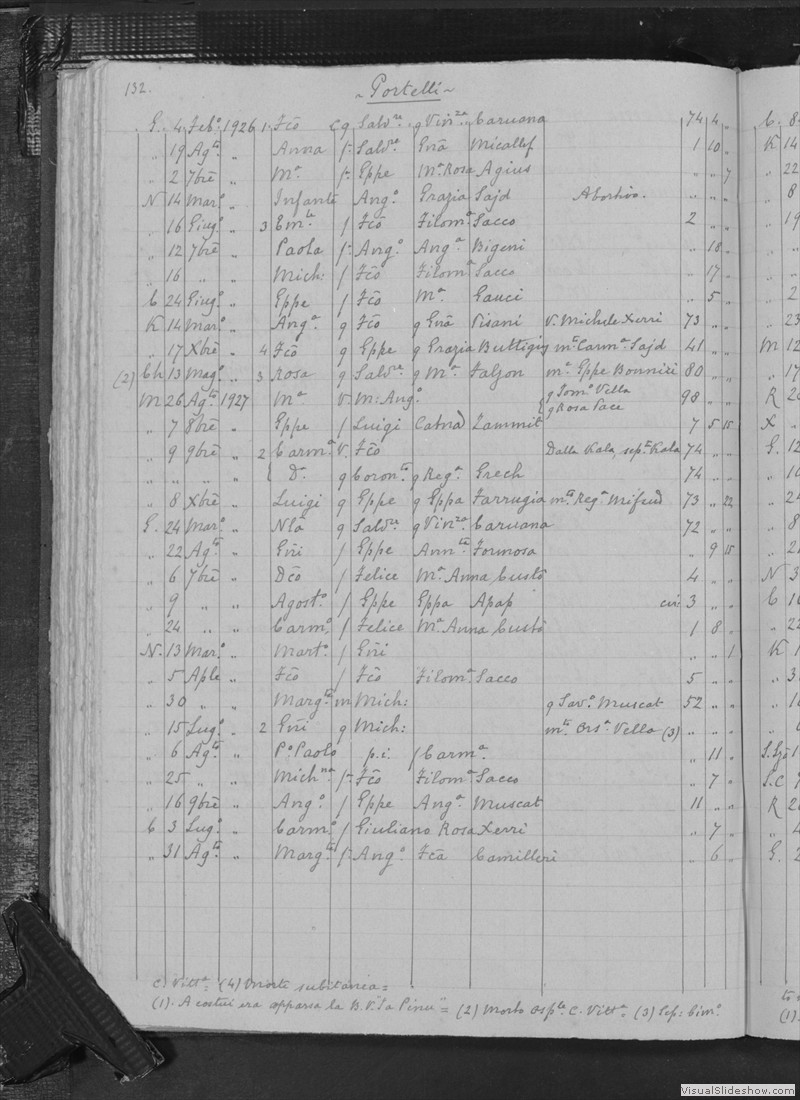 132.
~ Portelli ~
G. 4 Feb.º 1926 1. Fcõ C g Salv.re g Vin.za Caruana 74 4 "
" 19 Ag.to " Anna f. Salv.re Gnã Micallef 1 10 "
" 2 7bre " M.a f. Gppe M.a Rosa Agius " " 7
N 14 Mar.º " Infante Ang.º Grazia Sajd Abortivo. " " "
" 16 Giug.º " 3 Em.le f Fcõ Filom.a Sacco 2 " "
" 12 7bre " Paola f. Ang.º Ang.a Bigeni " 18 "
" 16 " " Mich: f Fcõ Filom.a Sacco " 17 "
C 24 Giug.º " Gppe f Fcõ M.a Gauci " 5 "
K 14 Mar.º " Ang.a g Fcõ g Gnã Pisani v. Michele Xerri 73 " "
" 17 Xbre " 4 Fcõ g Gppe g Grazia Buttigig m.to Carm.a Sajd 41 " "
(2) Ch 13 Mag.º " 3 Rosa g Salv.re g M.a Falzon m.a Gppe Bonnici 80 " "
M 26 Ag.to 1927 M.a v. M: Ang.º { g Tom.º Vella g Rosa Pace 98 " "
" 7 8bre " Gppe f Luigi Catnã Zammit 7 5 15
" 9 9bre " 2 { Carm.a v. Fcõ Dalla Kala, sep.ta Kala 74 " "
" " " " D.a g Coron.to g Reg.a Grech 74 " "
" 8 Xbre " Luigi g Gppe g Gppa Farrugia m.to Reg.a Mifsud 73 " 22
G. 24 Mar.º " Nla g Salv.re g Vin.za Caruana 72 " "
" 22 Ag.to " Gñi f Gppe Ann.ta Formosa " 9 15
" 6 7bre " Dcõ f Felice M.a Anna Custò 4 " "
" 9 " " Agost.º f Gppe Gppa Apap cir: 3 " "
" 24 " " Carm.º f Felice M.a Anna Custò 1 8 "
N. 13 Mar.º " Mart.º f Gñi " " 1
" 5 Aple " Fcõ f Fcõ Filom.a Sacco 5 " "
" 30 " " Marg.ta m Mich: g Sav.º Muscat 52 " "
" 15 Lug.º " 2 Gñi g Mich: m.to Ors.a Vella (3) " "
" 6 Ag.to " P.º Paolo p.i. f Carm.a " 11 "
" 25 " " Mich.na f. Fcõ Filom.a Sacco " 7 "
" 16 9bre " Ang.º f Gppe Ang.a Muscat 11 " "
C 3 Lug.º " Carm.º f Giuliano Rosa Xerri " 7 "
" 31 Ag.to " Marg.ta f. Ang.º Fcã Camilleri " 6 "
C. Vitt.a = (4) Morte subitanea =
(1). A costui era apparsa la B. V. Ta Pinu" = (2) Morto Osp.le C. Vitt.a = (3) Sep: Cim.º
VisualSlideshow.com